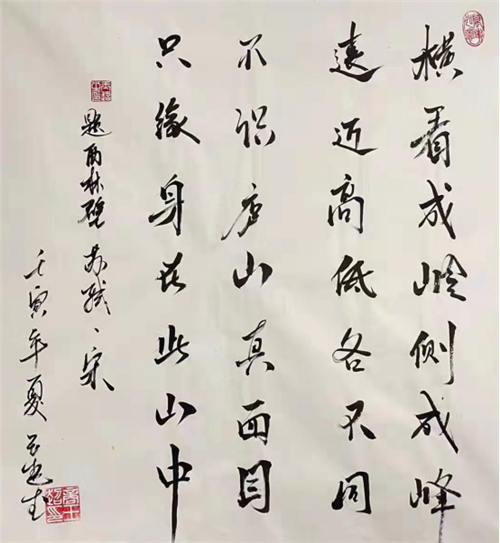 横看成岭侧成峰
远近高低各不同
不识庐山真面目
只缘身在此山中
题西林壁 苏轼、宋
壬寅年夏